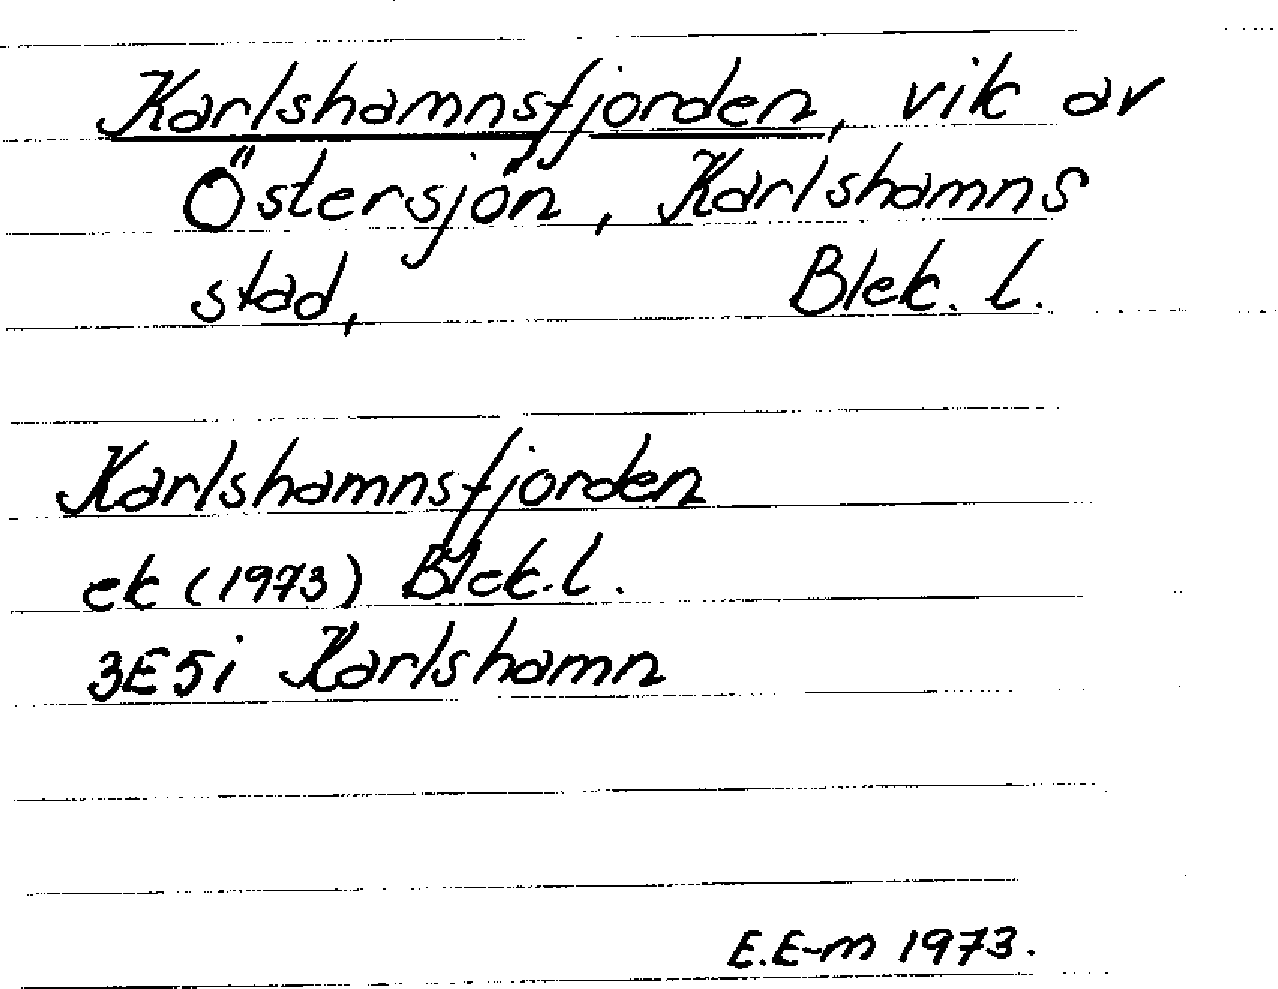 Karlshamnsfjorden, vik av
Östersjön, Karlshamns
stad, Blek. l.
Karlshamnsfjorden
ek (1973) Blek. l.
3E5i Karlshamn
E.E-m 1973.